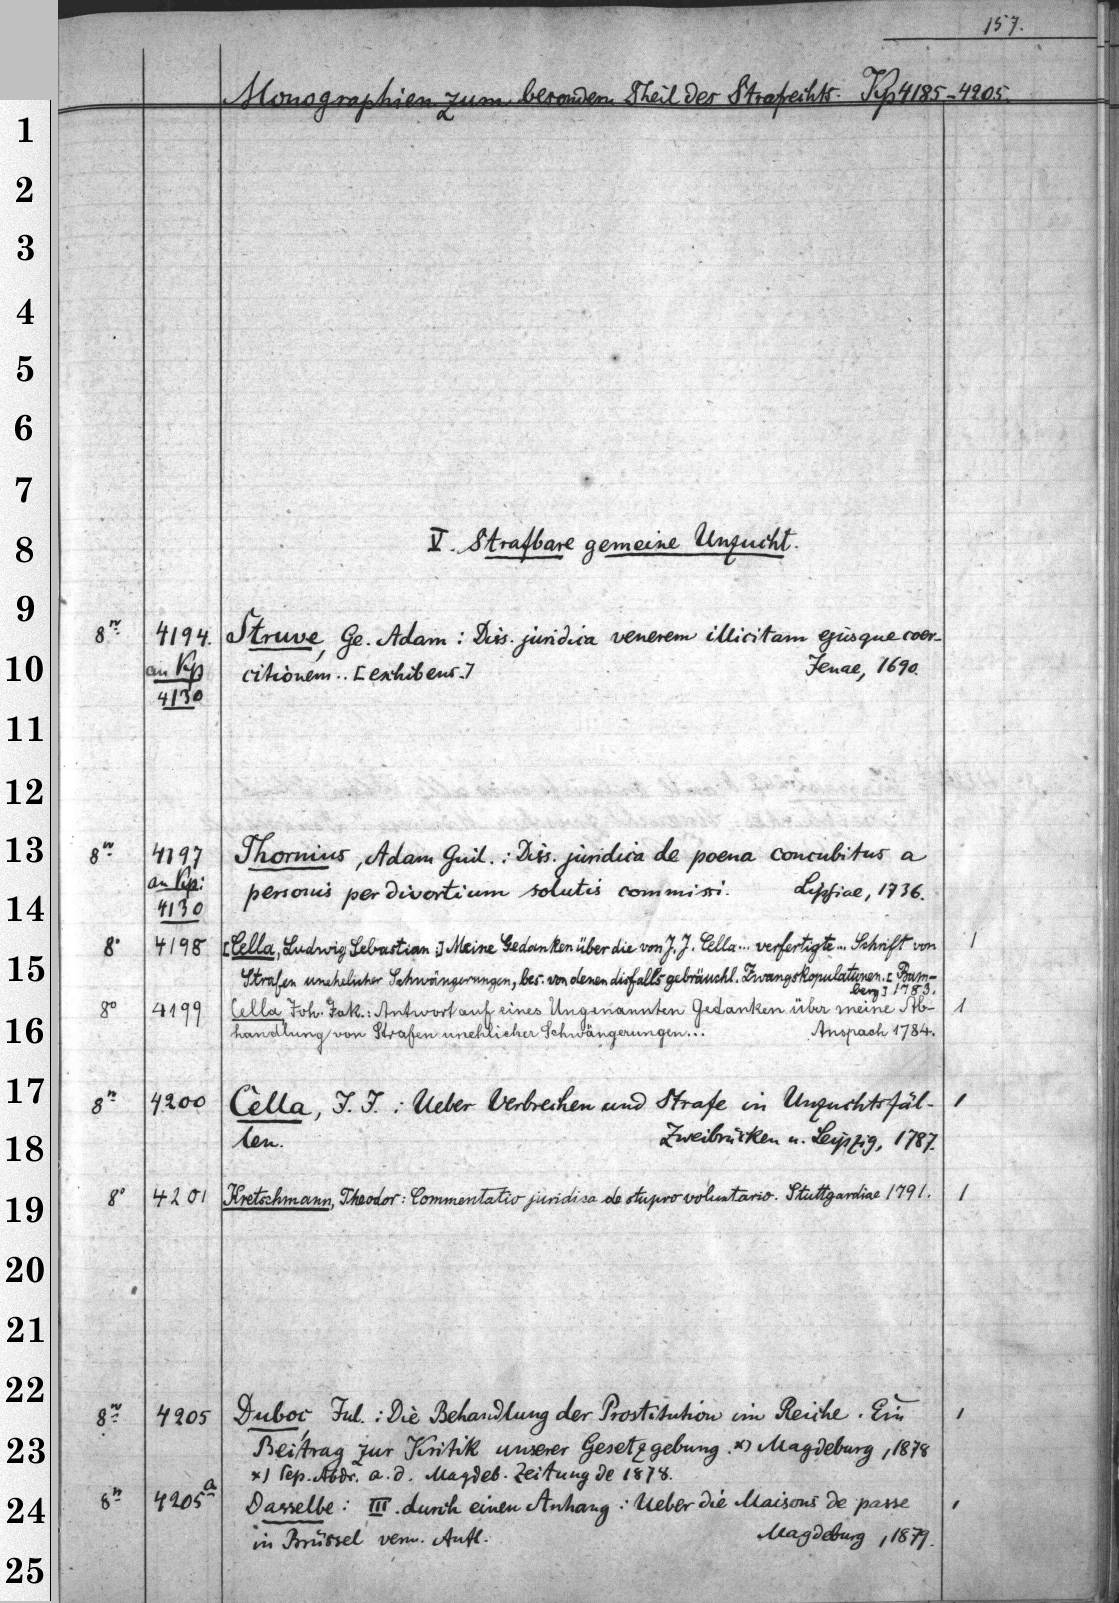 157.
Monographien zum besondern Theil des Strafrechts. Kp 4185-4205.
1
2
3
4
5
6
7
8 V. Strafbare gemeine Unzucht.
9
8° 4194. Struve, Ge. Adam: Diss. juridica venerem illicitam ejusque coer-
10 an Kp citionem.. [exhibens.] Jenae, 1690.
4130
11
12
13 8° 4197 Thornius, Adam Guil.: Diss. juridica de poena concubitus a
an Kp: personis per divortium solutis commissi. Lipsiae, 1736.
14 4130
8° 4198 [Cella, Ludwig Sebastian:] Meine Gedanken über die von J. J. Cella... verfertigte... Schrift von 1
15 Strafen unehelicher Schwängerungen, bes. von denen disfalls gebräuchl. Zwangskopulatunen. [Bam-
berg] 1783.
8° 4199 Cella Joh. Jak.: Antwort auf eines Ungenannten Gedanken über meine Ab- 1
16 handlung von Strafen unehlicher Schwängerungen... Anspach 1784.
17 8° 4200 Cella, J. J.: Ueber Verbrechen und Strafe in Unzuchtsfäl- 1
18 len. Zweibrücken u. Leipzig, 1787.
19 8° 4201 Kretschmann, Theodor: Commentatio juridica de stupro voluntario. Stuttgardiae 1791. 1
20
21
22
8° 4205 Duboc, Jul.: Die Behandlung der Prostitution im Reiche. Ein 1
23 Beitrag zur Kritik unserer Gesetzgebung. x) Magdeburg, 1878
x) Sep. Abdr. a. d. Magdeb. Zeitung de 1878.
24 8° 4205a Dasselbe: III. durch einen Anhang: Ueber die Maisons de passe 1
in Brüssel verm. Aufl. Magdeburg, 1879.
25